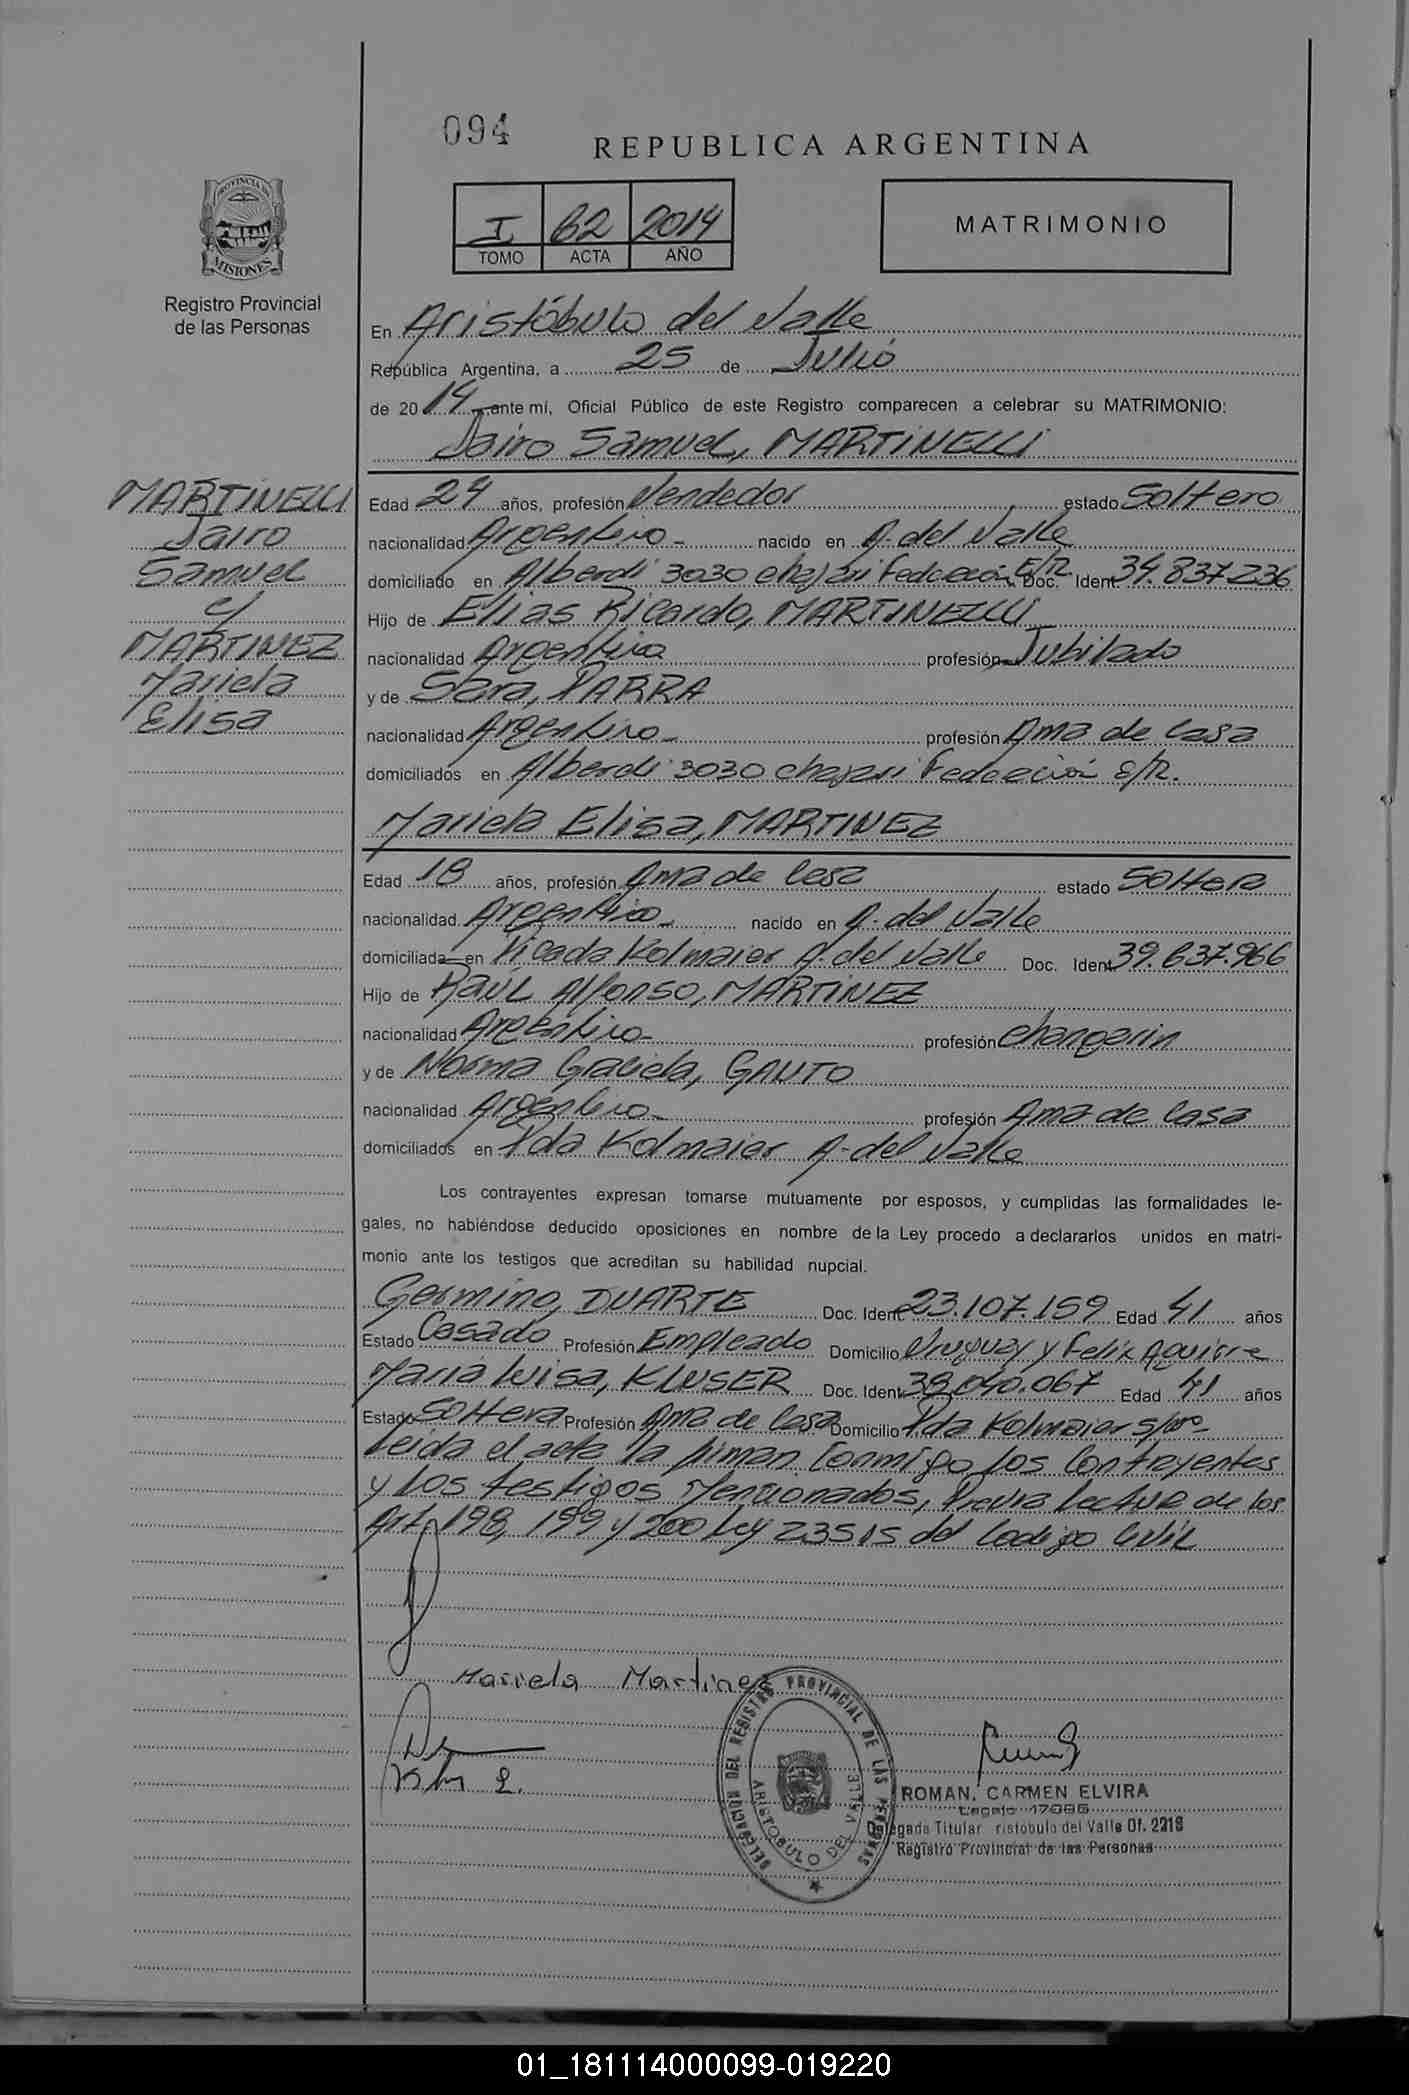 094
REPUBLICA ARGENTINA
PROVINCIA DE
MISIONES
Registro Provincial
de las Personas
I 62 2014
TOMO ACTA AÑO
MATRIMONIO
En Aristóbulo del Valle
República Argentina, a 25 de Julio
de 2014 ante mí, Oficial Público de este Registro comparecen a celebrar su MATRIMONIO:
Jairo Samuel, MARTINELLI
MARTINELLI
Jairo
Samuel
c/
MARTINEZ
Mariela
Elisa
Edad 24 años, profesión Vendedor estado Soltero
nacionalidad Argentino - nacido en A. del Valle
domiciliado en Alberdi 3030 Chajari Federación E/R. Doc. Ident. 34.837.236
Hijo de Elias Ricardo, MARTINELLI
nacionalidad Argentina profesión Jubilado
y de Sara, PARRA
nacionalidad Argentino - profesión Ama de Casa
domiciliados en Alberdi 3030 Chajari Federación E/R.
Mariela Elisa, MARTINEZ
Edad 18 años, profesión Ama de Casa estado Soltera
nacionalidad Argentino - nacido en A. del Valle
domiciliada en Picada Kolmaier A. del Valle Doc. Ident. 39.637.966
Hijo de Raúl Alfonso, MARTINEZ
nacionalidad Argentino - profesión Changarin
y de Norma Graciela, GAUTO
nacionalidad Argentino - profesión Ama de Casa
domiciliados en Pda Kolmaier A. del Valle
Los contrayentes expresan tomarse mutuamente por esposos, y cumplidas las formalidades le-
gales, no habiéndose deducido oposiciones en nombre de la Ley procedo a declararlos unidos en matri-
monio ante los testigos que acreditan su habilidad nupcial.
Germino, DUARTE Doc. Ident. 23.107.159 Edad 41 años
Estado Casado Profesión Empleado Domicilio Uruguay y Felix Aguirre
Maria Luisa, KLUSER Doc. Ident. 38.040.067 Edad 41 años
Estado Soltera Profesión Ama de Casa Domicilio Pda Kolmaier s/nro-
Leida el acta la firman conmigo los Contrayentes
y los testigos Mencionados, Previa Lectura de los
Art. 198, 199 y 200 Ley 23515 del Codigo Civil
Mariela Martinez
DELEGACION DEL REGISTRO PROVINCIAL DE LAS PERSONAS
ARISTOBULO DEL VALLE
ROMAN, CARMEN ELVIRA
Legajo
Delegada Titular ristobulo del Valle Of. 2218
Registro Provincial de las Personas
01_181114000099-019220